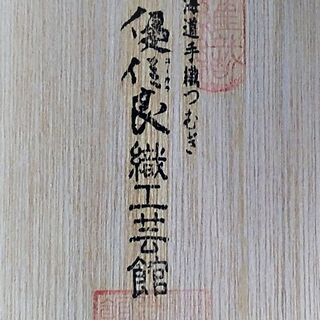 海道手織つむぎ
優佳良織工芸館